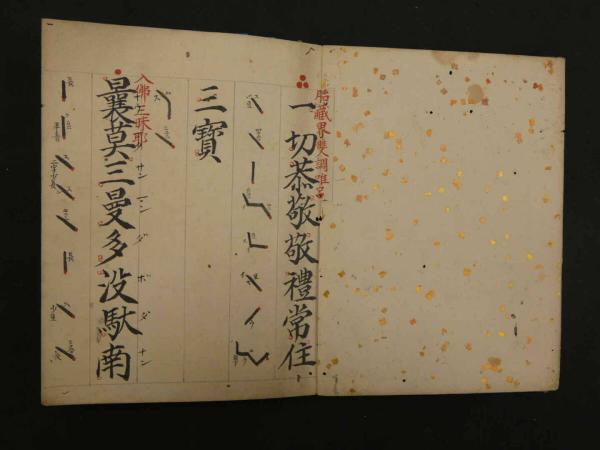 胎藏界雙調唯呂
一切恭敬敬禮常住
三寶
入佛三昧耶
曩莫三曼多没馱南
サンマンダボダナン